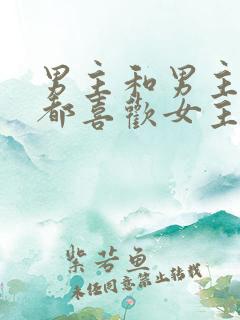 男主和男主
都喜歡女主
紫苦魚
未經同意禁止轉載